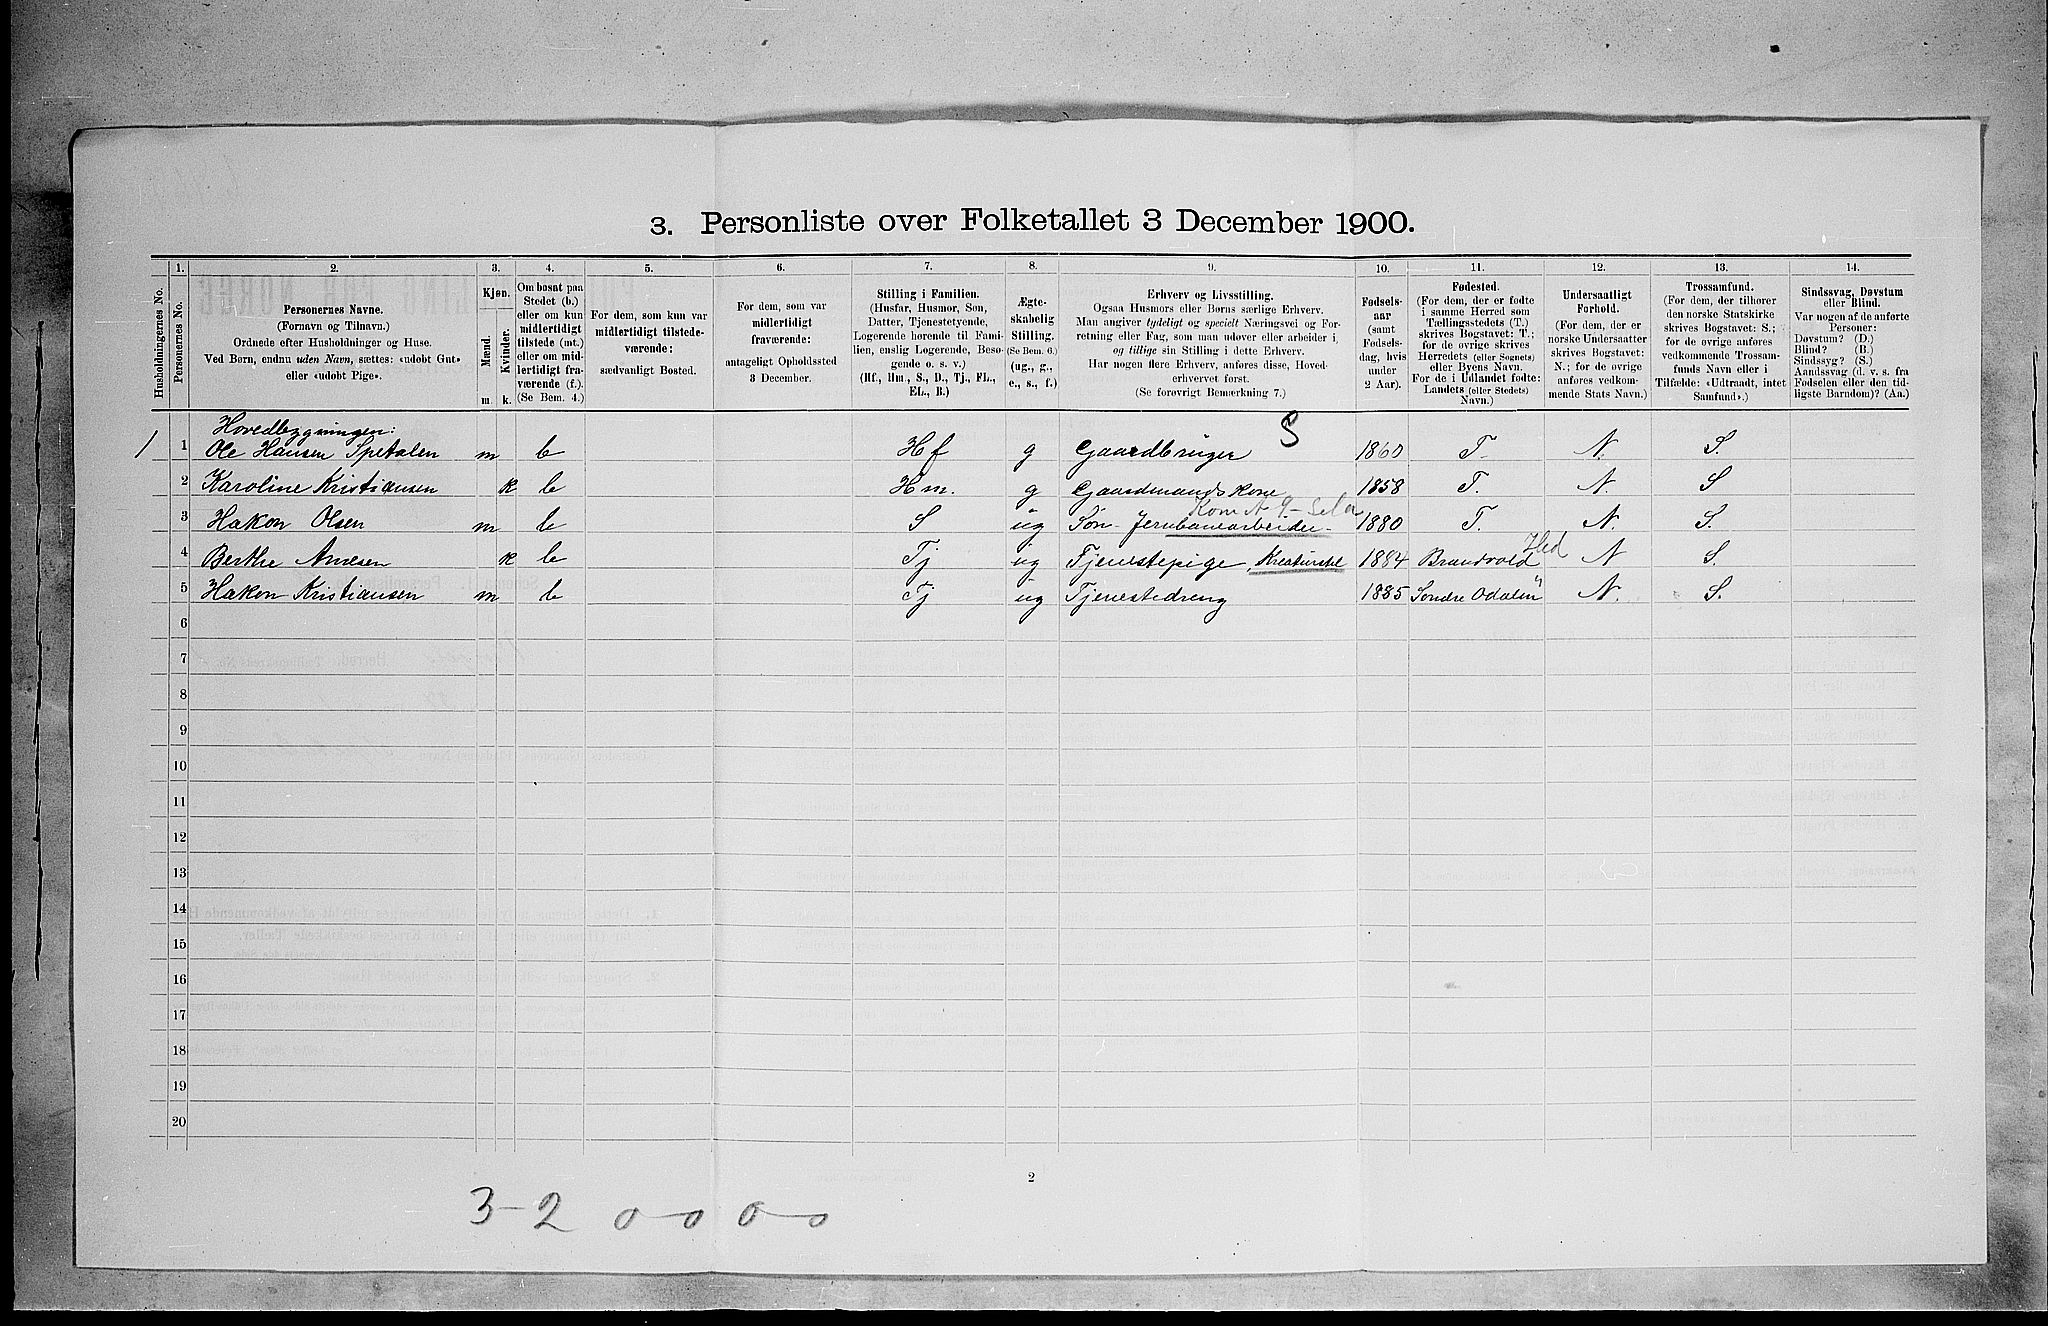 3. Personliste over Folketallet 3 December 1900.
1. 2. 3. 4. 5. 6. 7. 8. 9. 10. 11. 12. 13. 14.
Husholdningernes No.
Personernes No.
Personernes Navne.
(Fornavn og Tilnavn.)
Ordnede efter Husholdninger og Huse.
Ved Børn, endnu uden Navn, sættes: «udøbt Gut»
eller «udøbt Pige».
Kjøn.
Mænd.
Kvinder.
m. k.
Om bosat paa
Stedet (b.)
eller om kun
midlertidigt
tilstede (mt.)
eller om mid-
lertidigt fra-
værende (f.).
(Se Bem. 4.)
For dem, som kun var
midlertidigt tilstede-
værende:
sædvanligt Bosted.
For dem, som var
midlertidigt
fraværende:
antageligt Opholdssted
3 December.
Stilling i Familien.
(Husfar, Husmor, Søn,
Datter, Tjenestetyende,
Logerende hørende til Fami-
lien, enslig Logerende, Besø-
gende o. s. v.)
(Hf., Hm., S., D., Tj., FL.,
EL., B.)
Ægte-
skabelig
Stilling.
(Se Bem. 6.)
(ug., g.,
e., s., f.)
Erhverv og Livsstilling.
Ogsaa Husmors eller Børns særlige Erhverv.
Man angiver tydeligt og specielt Næringsvei og For-
retning eller Fag, som man udøver eller arbeider i,
og tillige sin Stilling i dette Erhverv.
Har nogen flere Erhverv, anføres disse, Hoved-
erhvervet først.
(Se forøvrigt Bemærkning 7.)
Fødsels-
aar
(samt
Fødsels-
dag, hvis
under
2 Aar).
Fødested.
(For dem, der er fødte
i samme Herred som
Tællingsstedets (T.)
skrives Bogstavet: T.;
for de øvrige skrives
Herredets (eller Sognets)
eller Byens Navn.
For de i Udlandet fødte:
Landets (eller Stedets)
Navn.)
Undersaatligt
Forhold.
(For dem, der er
norske Undersaatter
skrives Bogstavet:
N.; for de øvrige
anføres vedkom-
mende Stats Navn.)
Trossamfund.
(For dem, der tilhører
den norske Statskirke
skrives Bogstavet: S.;
for de øvrige anføres
vedkommende Trossam-
funds Navn eller i
Tilfælde: «Udtraadt, intet
Samfund».)
Sindssvag, Døvstum
eller Blind.
Var nogen af de anførte
Personer:
Døvstum? (D.)
Blind? (B.)
Sindssyg? (S.)
Aandssvag (d. v. s. fra
Fødselen eller den tid-
ligste Barndom)? (Aa.)
Hovedbygningen: S
1 1 Ole Hansen Spetalen m b Hf g Gaardbruger 1860 T. N. S.
2 Karoline Kristiansen k b Hm. g Gaardmandskone 1858 T. N. S
3 Hakon Olsen m b S ug Søn - Jernbanearbeider 1880 T. N. S.
4 Berthe Arnesen k b Tj ug Tjenestepige, Kreaturstel 1884 Brandvold Hed N S.
5 Hakon Kristiansen m b Tj ug Tjenestedreng 1885 Søndre Odalen " N. S.
6
7
8
9
10
11
12
13
14
15
16
17
18
19
20
2
3-2 0-0 0-0